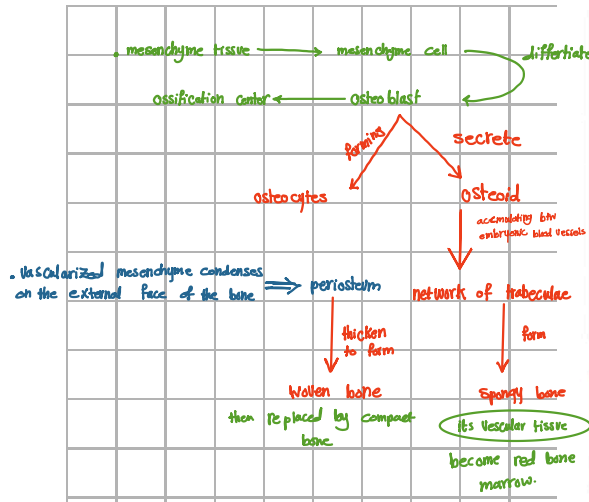 . mesenchyme tissue mesenchyme cell differtiate
Ossification center Osteoblast
forming secrete
osteocytes Osteoid
acemulating btw
embryonic blood vessels
. Vascularized mesenchyme condenses
on the external face of the bone
periosteum network of trabeculae
thicken
to form
form
Woven bone Spongy bone
then replaced by compact
bone
its Vescular tissue
become red bone
marrow.